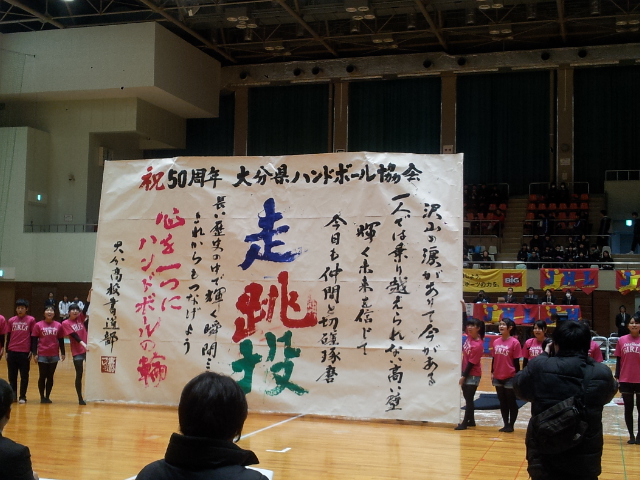 祝50周年 大分県ハンドボール協会
沢山の涙があって今がある
一人では乗り越えられない高い壁
輝く未来を信じて
今日も仲間と切磋琢磨
走跳投
長い歴史の中で輝く瞬間…
これからもつなげよう
心を一つに
ハンドボールの輪
大分高校書道部